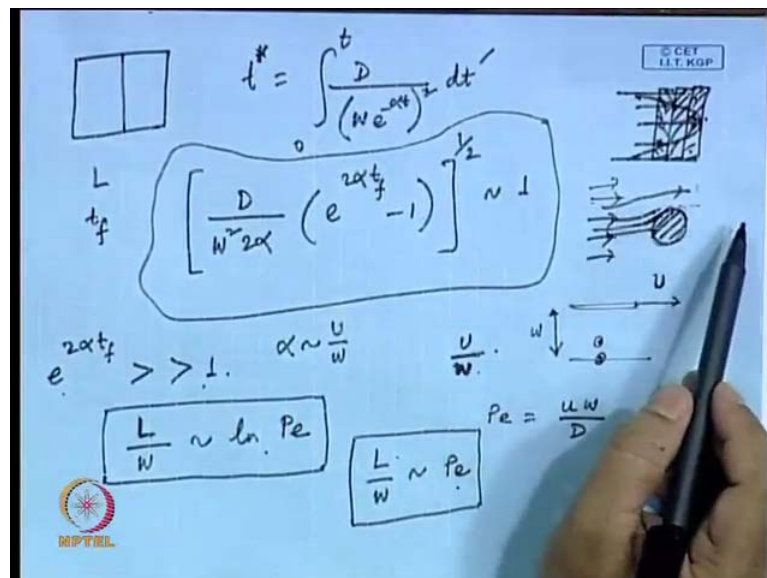 © CET
I.I.T. KGP
t* = ∫₀ᵗ D / (W e^{-αt})² dt′
L
t_f
[ D / (W² 2α) ( e^{2αt_f} - 1 ) ]^{1/2} ~ 1
U
W
e^{2αt_f} >> 1.
α ~ U/W
U/W.
L/W ~ ln Pe
L/W ~ Pe
Pe = uW/D
NPTEL